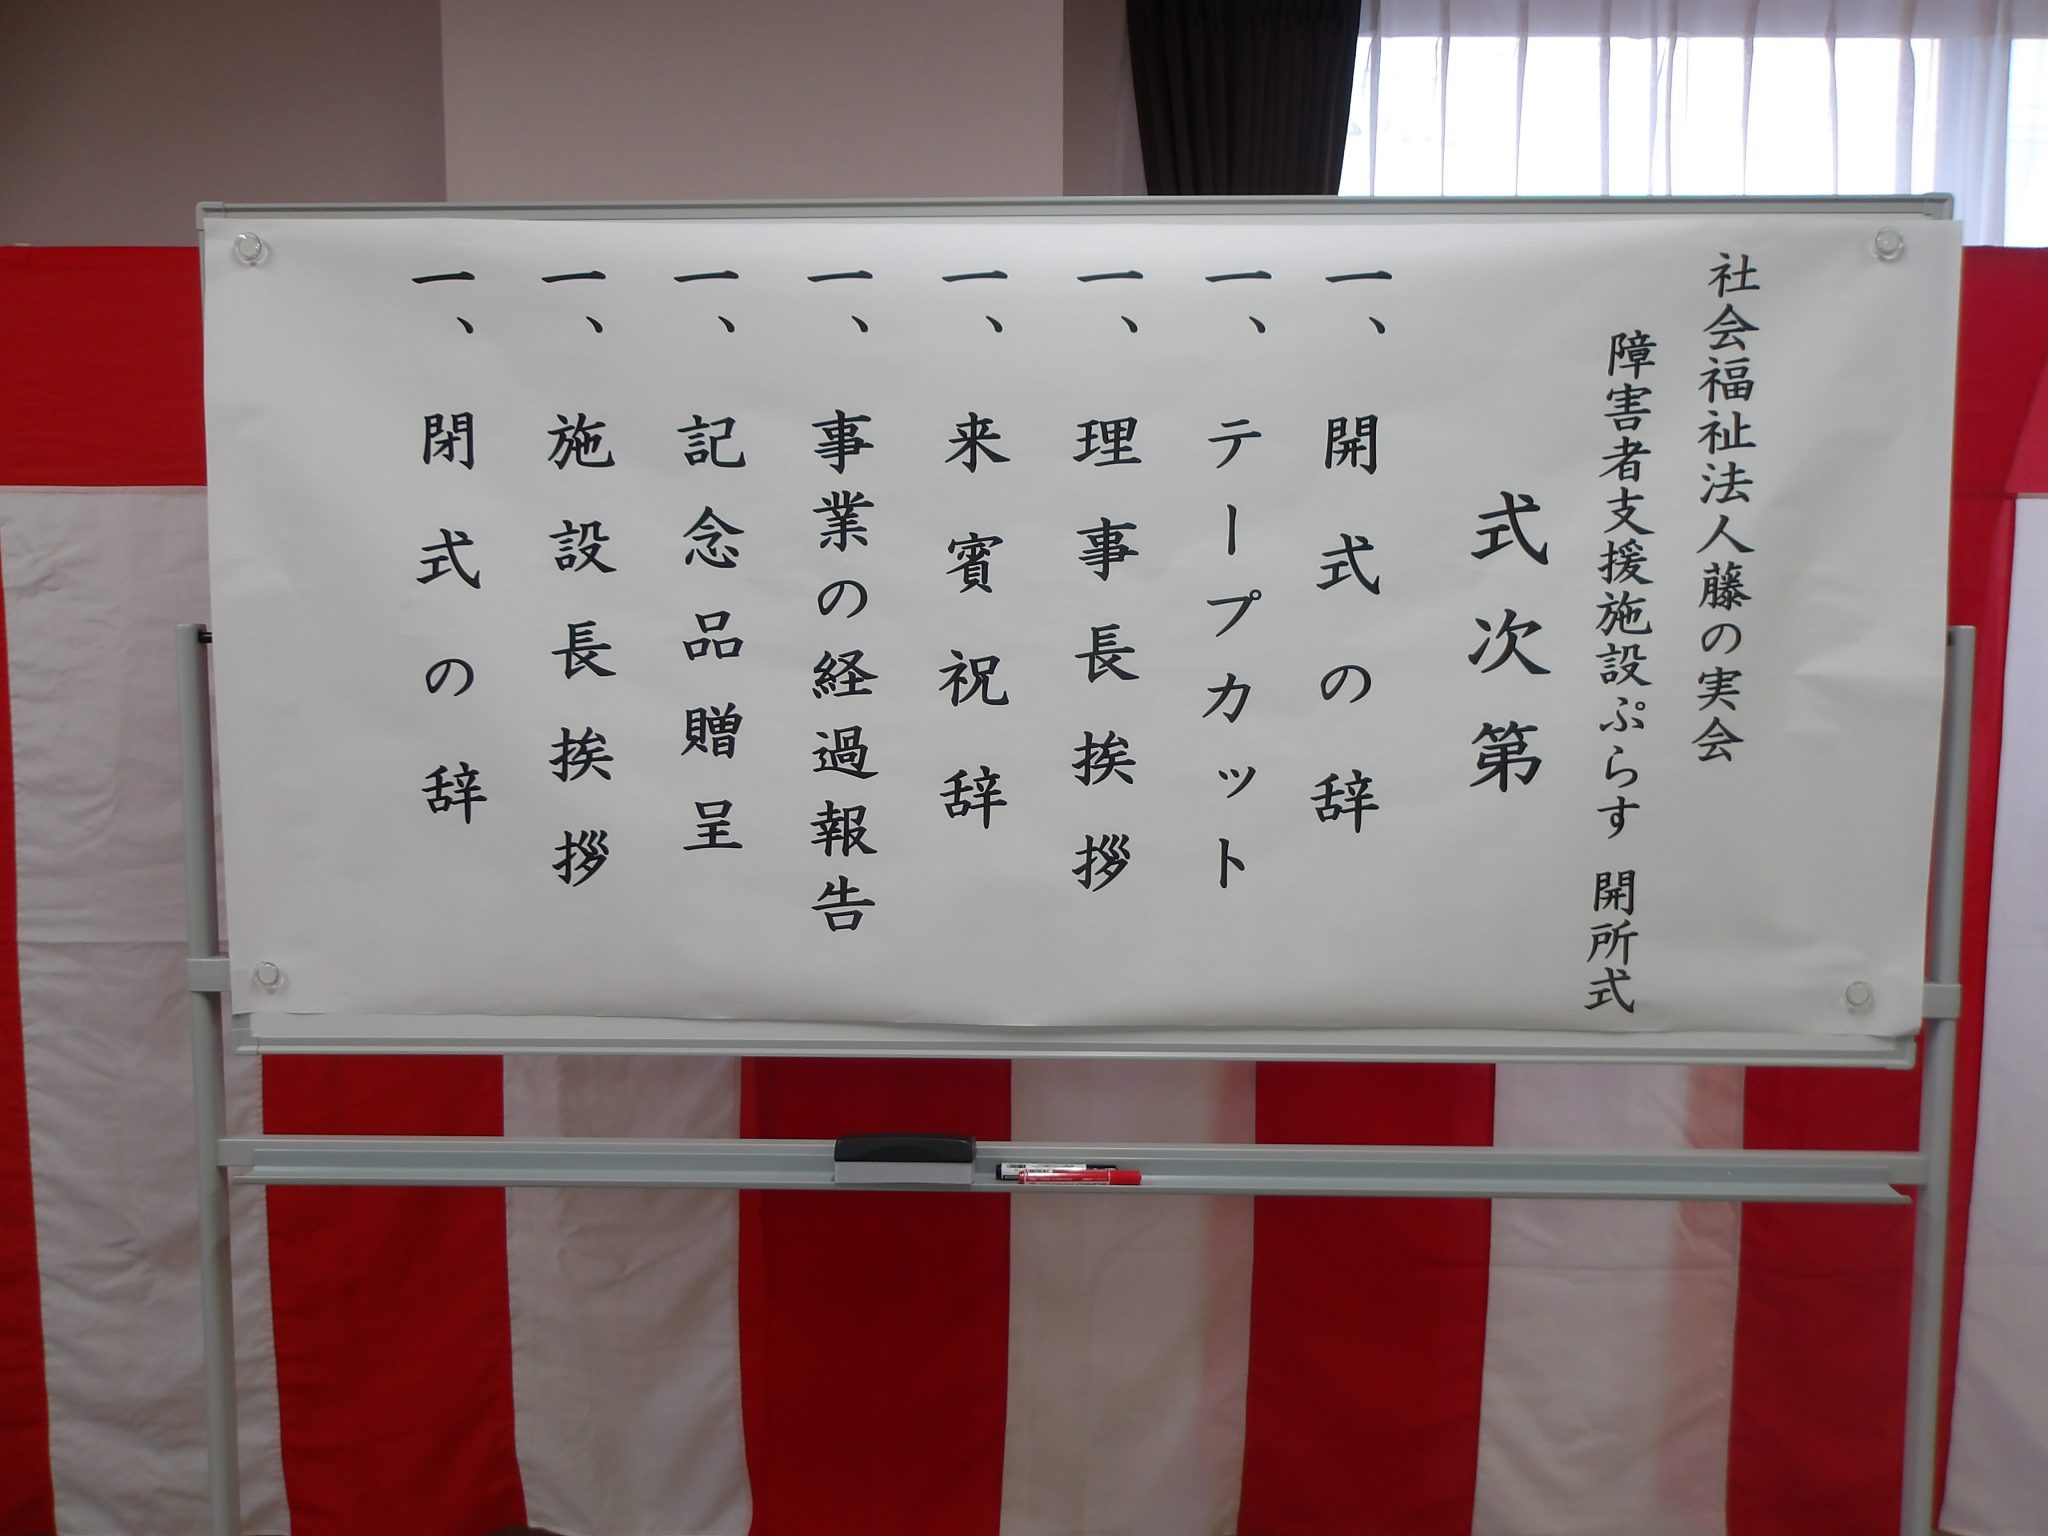 社会福祉法人藤の実会
障害者支援施設ぷらす 開所式
式次第
一、開式の辞
一、テープカット
一、理事長挨拶
一、来賓祝辞
一、事業の経過報告
一、記念品贈呈
一、施設長挨拶
一、閉式の辞